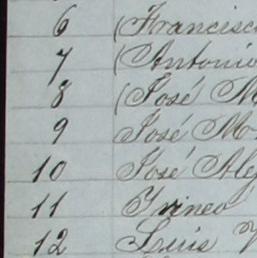 6 (Francisco
7 (Antonio
8 (José M
9 José Mo
10 José Alej
11 Irineo
12 Luis V